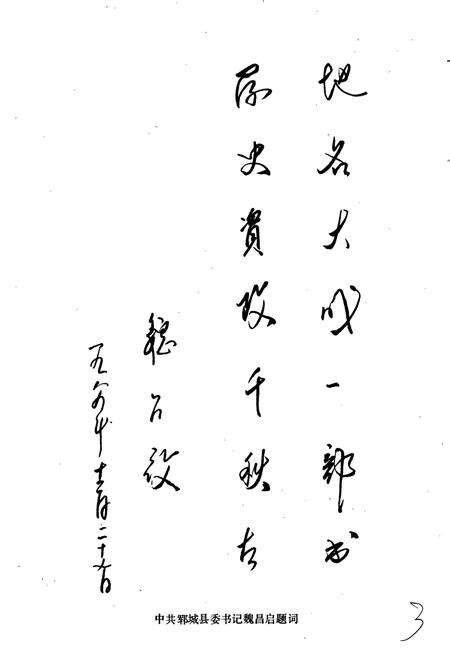 地名大成一部书
历史资政千秋古
魏昌启
一九八六年十二月二十六日
中共郓城县委书记魏昌启题词
3